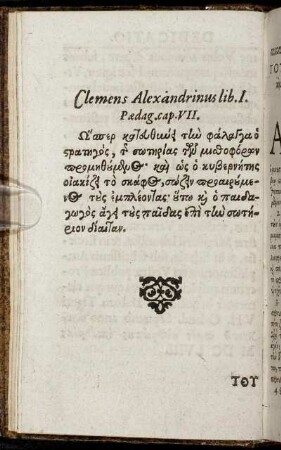 Clemens Alexandrinus lib. I.
Pædag. cap. VII.
Ὥσπερ κατευθύνει τὴν φάλαγγα ὁ
στρατηγὸς, τῆς σωτηρίας τῶν μισθοφόρων
προμηθούμενος· καὶ ὡς ὁ κυβερνήτης
οἰακίζει τὸ σκάφος, σώζειν προαιρούμεν-
ος τοὺς ἐμπλέοντας· οὕτω καὶ ὁ παιδα-
γωγὸς ἄγει τοὺς παῖδας ἐπὶ τὴν σωτή-
ριον δίαιταν.
ΤΟΥ